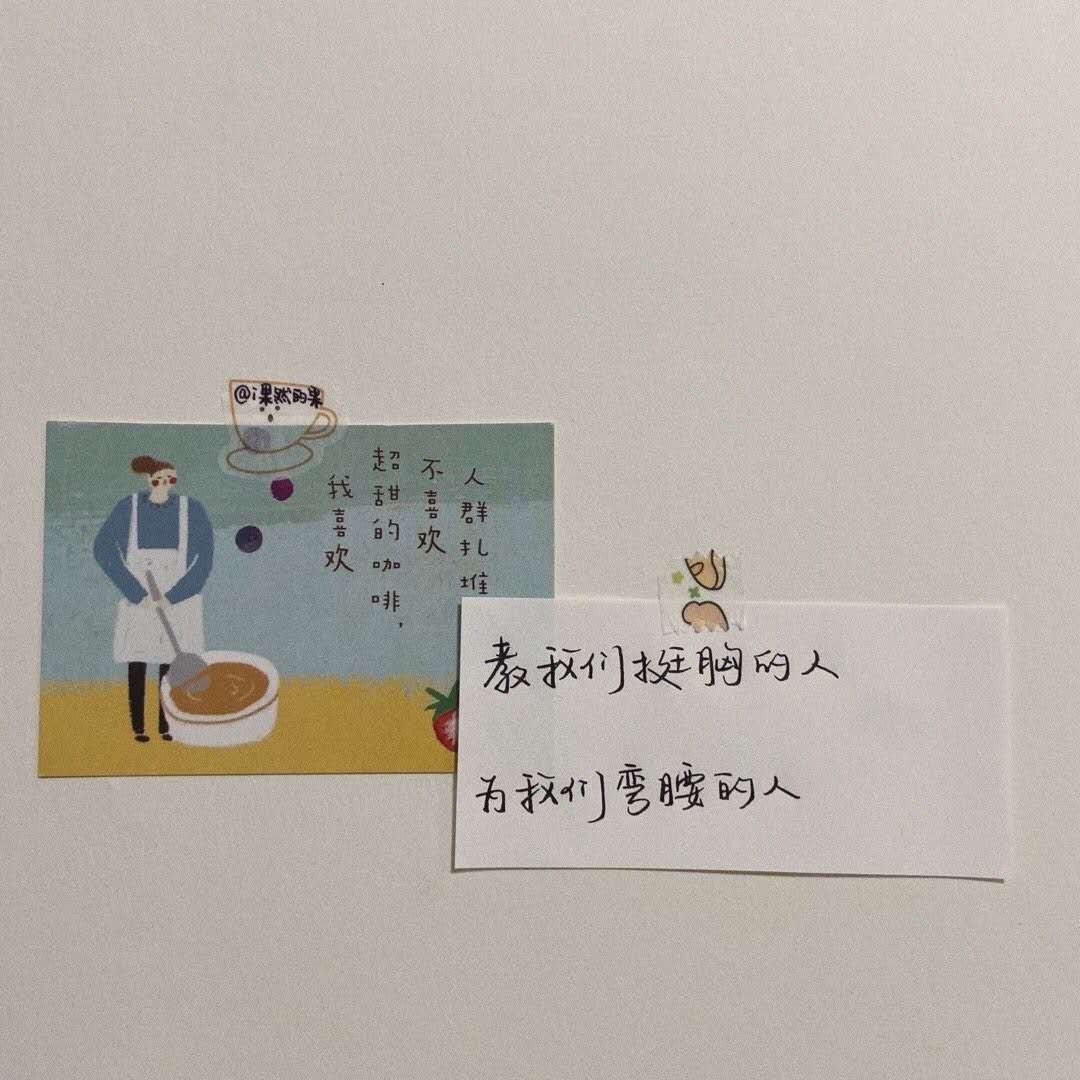 @i果然的果
我喜欢
超甜的咖啡，
不喜欢
人群扎堆
教我们挺胸的人
为我们弯腰的人